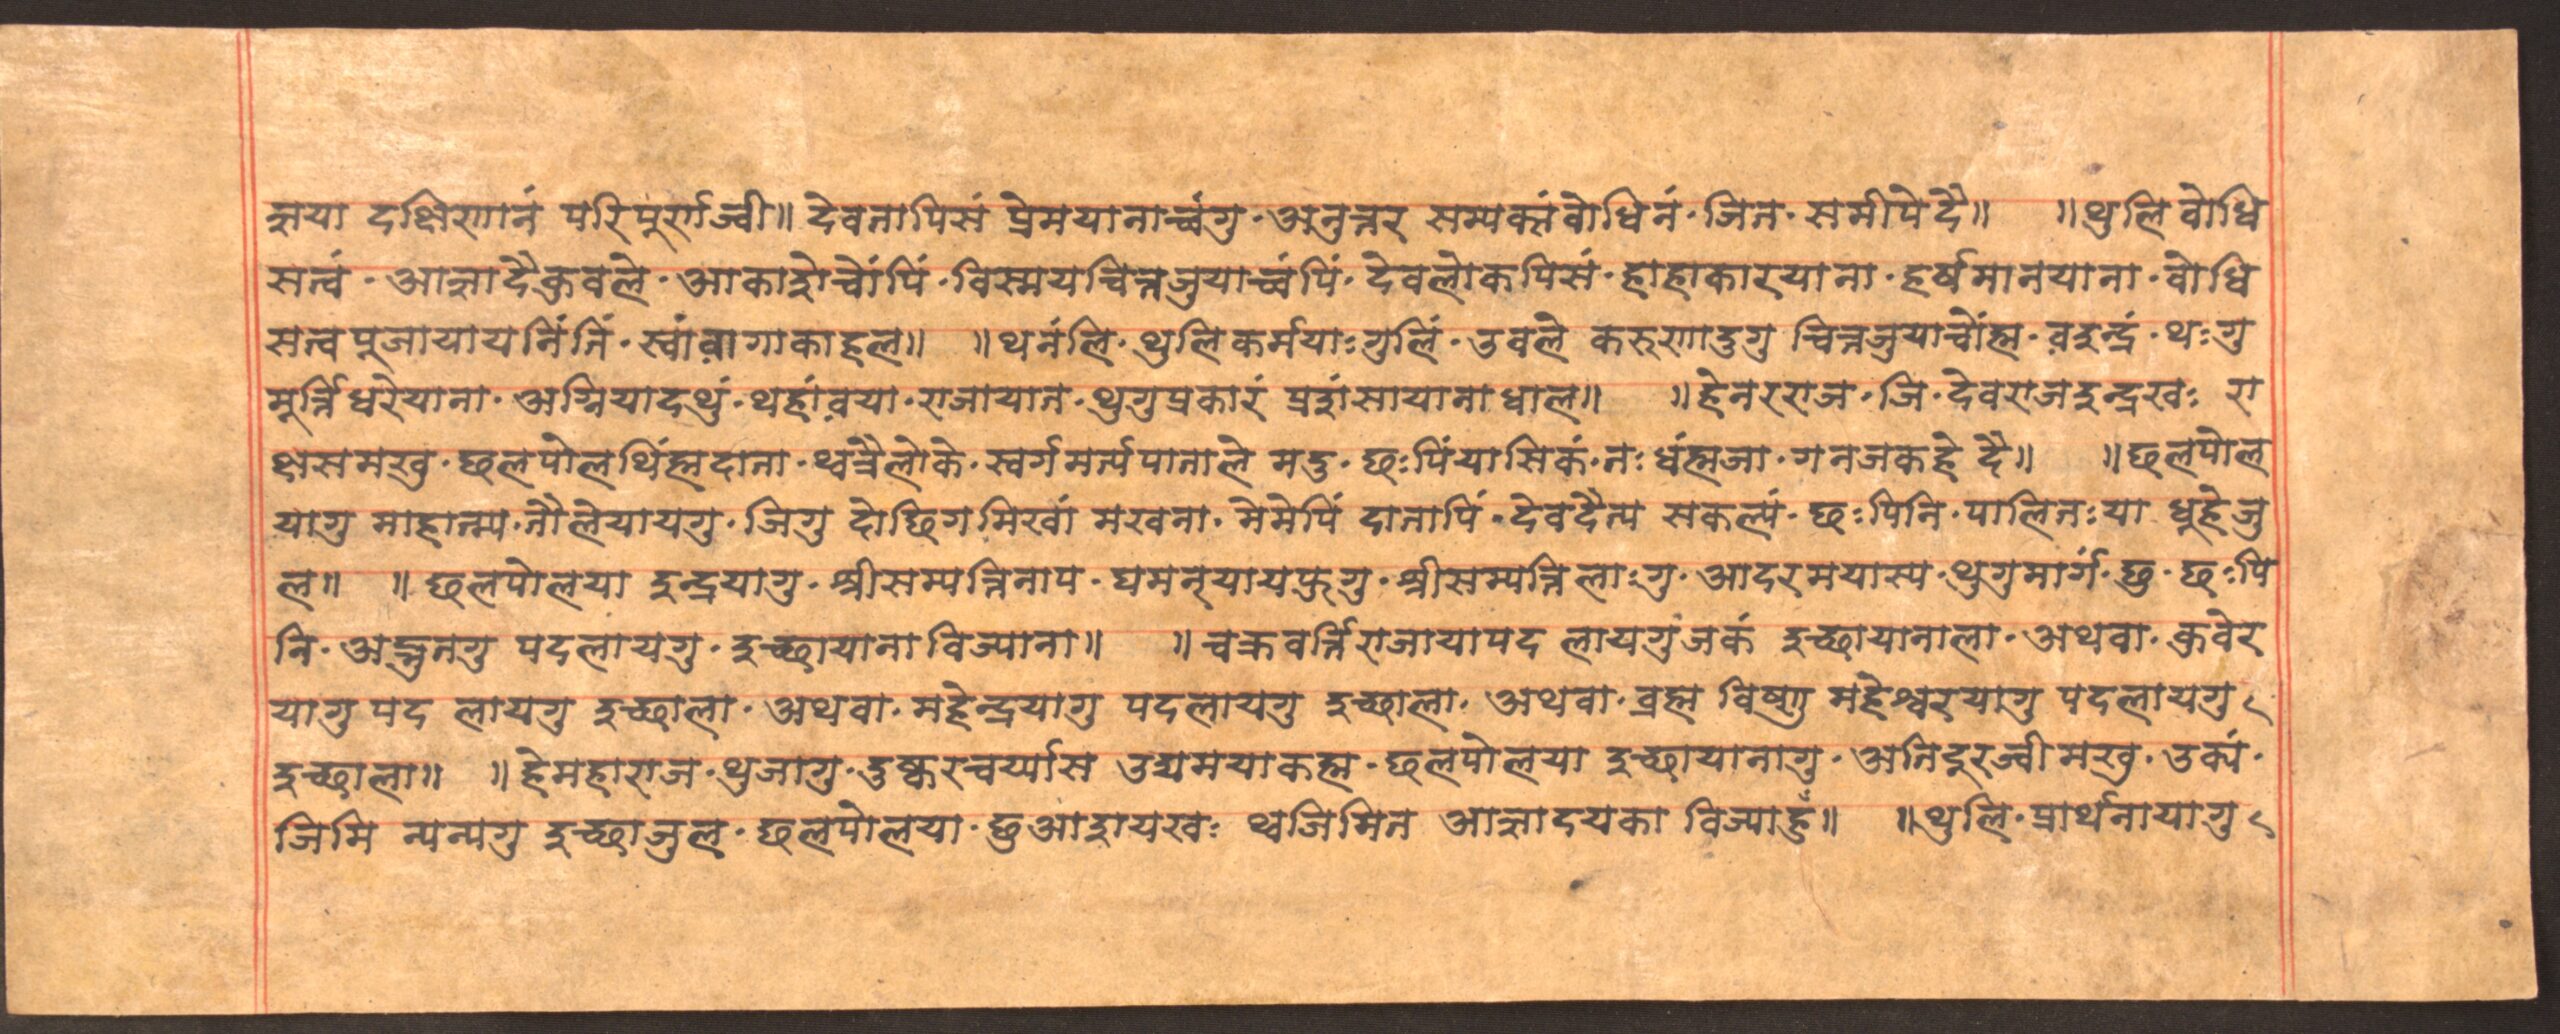 ज्ञया दक्षिणानं परिपूर्णज्वी॥ देवतापिसं प्रेमयानाच्वंगु · अनुत्तर सम्यक्संवोधिनं · जित · समीपे दै॥ ॥थुलि वोधि
सत्वं · आज्ञादैकुवले · आकाशेच्वोंपिं · विस्मयचित्तजुयाच्वंपिं · देवलोकपिसं · हाहाकारयाना · हर्षमानयाना · वोधि
सत्वपूजायायनिंतिं · स्वांवागाकाहल॥ ॥थनंलि · थुलिकर्मयाःगुलिं · उवले करुणादुगु चित्तजुयाच्वोंह्म · व़इन्द्रं · थःगु
मूर्त्तिधरेयाना · अग्नियादथुं · थहांव़या · राजायात · थुगुप्रकारं प्रशंसायानाधाल॥ ॥हेनरराज · जि · देवराजइन्द्रखः रा
क्षसमखु · छलपोलथिंह्मदाता · थ्वत्रैलोके · स्वर्गमर्त्यपाताले मदु · छःपिंयासिकं · तःधंह्मजा · गनजकहे दै॥ ॥छलपोल
यागु माहात्म्य · तौलेयायगु · जिगु दोछिगमिखां मखना · मेमेपिं दातापिं · देवदैत्य सकल्यं · छःपिनि · पालितःया धूहेजु
ल॥ ॥छलपोलया इन्द्रयागु · श्रीसम्पत्तिनाप · घमन्‌यायफुगु · श्रीसम्पत्तिलाःगु · आदरमयास्य · थुगुमार्गं · छु · छःपि
नि · अद्भुतगु पदलायगु · इच्छायानाविज्याना॥ ॥चक्रवर्त्तिराजायापद लायगुजकं इच्छायानाला · अथवा · कुवेर
यागु पद लायगु इच्छाला · अथवा · महेन्द्रयागु पदलायगु इच्छाला · अथवा · ब्रह्म विष्णु महेश्वरयागु पदलायगु
इच्छाला॥ ॥हेमहाराज · थुजागु · दुष्करचर्य्यास उद्यमयाकह्म · छलपोलया इच्छायानागु · अतिदुरज्वीमखु · उक्यं ·
जिमि न्यन्यगु इच्छाजुल · छलपोलया · छुआशयखः थ्वजिमित आज्ञादयका विज्याहुं॥ ॥थुलि · प्रार्थनायागु